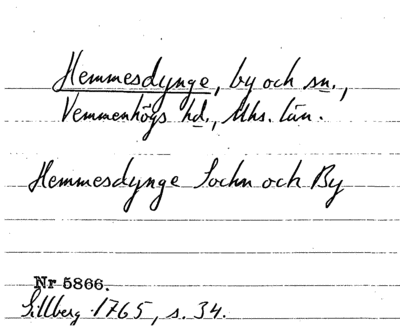 Hemmesdynge, by och sn.,
Vemmenhögs hd., Mhs. län.
Hemmesdynge Sochn och By
Nr 5866.
Gillberg 1765, s. 34.